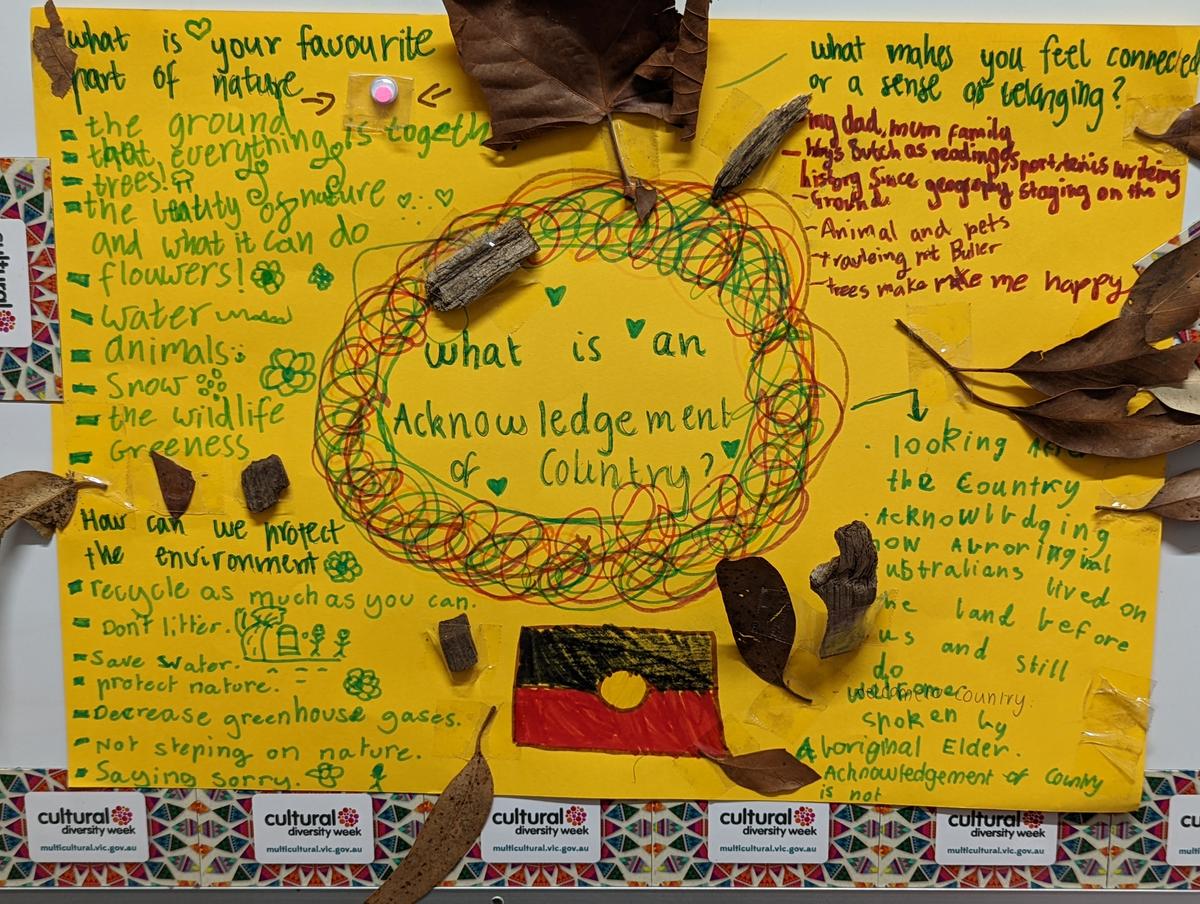 what is your favourite
part of nature
the ground
that everything is togeth
trees!
the beauty of nature
and what it can do
flowers!
water
animals
Snow
the wildlife
Greeness
How can we protect
the environment
recycle as much as you can.
Don't litter.
Save water.
protect nature.
Decrease greenhouse gases.
Not steping on nature.
Saying sorry.
What is an
Acknowledgement
of Country?
what makes you feel connected
or a sense of belanging?
my dad, mum family
as reading sport tenis
history geography staging on the
Ground
- Animal and pets
- travleing mt Buller
- trees make me happy
looking
the Country
Acknowledging
how
ustralians lived on
he land before
us and still
do
country.
spoken by
Aboriginal Elder.
Acknowledgement of Country
is not
cultural
cultural
diversity week
multicultural.vic.gov.au
cultural
diversity week
multicultural.vic.gov.au
cultural
diversity week
multicultural.vic.gov.au
cultural
diversity week
multicultural.vic.gov.au
cultural
diversity week
multicultural.vic.gov.au